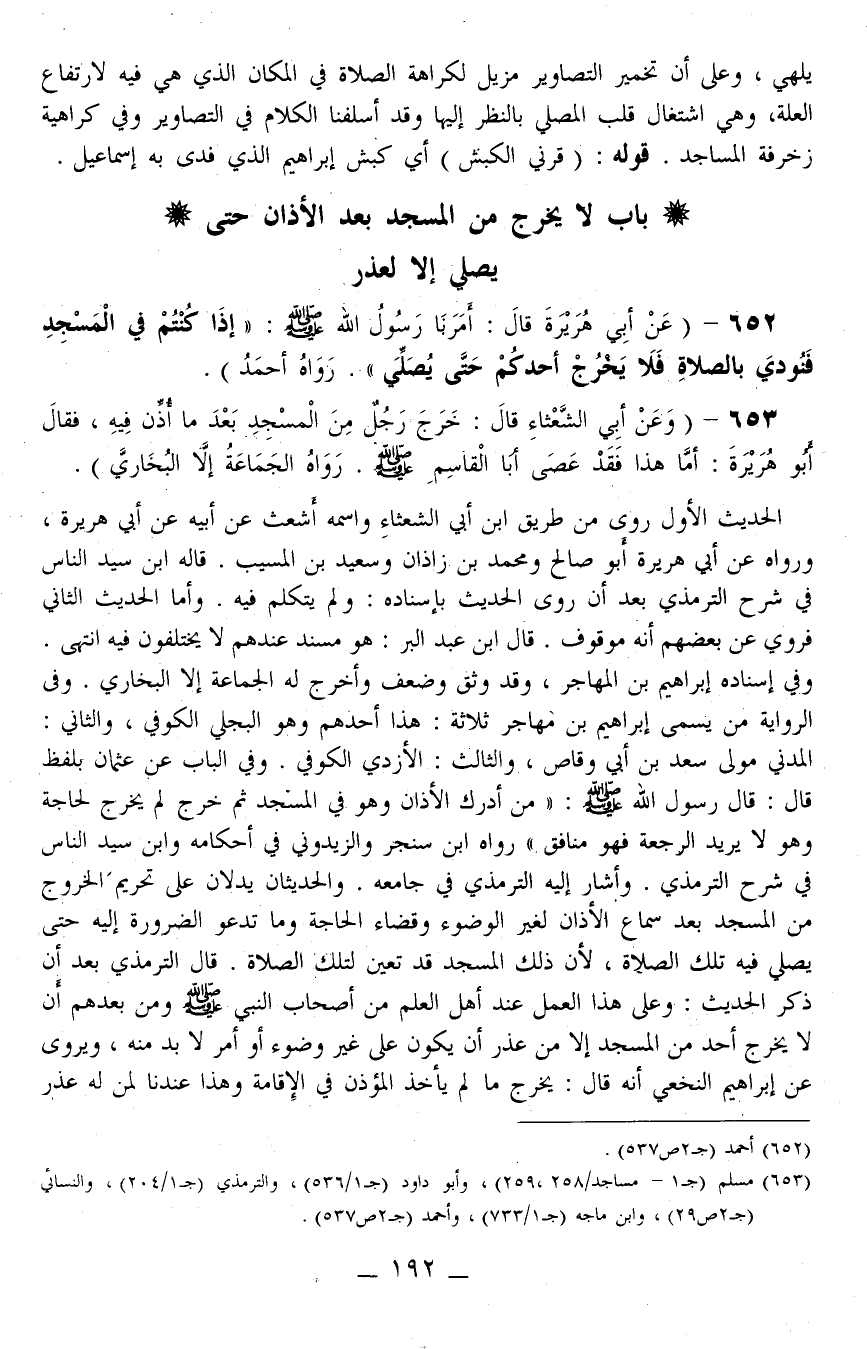 يلهي ، وعلى أن تخمير التصاوير مزيل لكراهة الصلاة في المكان الذي هي فيه لارتفاع
العلة، وهي اشتغال قلب المصلي بالنظر إليها وقد أسلفنا الكلام في التصاوير وفي كراهية
زخرفة المساجد . قوله : ( قرني الكبش ) أي كبش إبراهيم الذي فدى به إسماعيل .
✷ باب لا يخرج من المسجد بعد الأذان حتى ✷
يصلي إلا لعذر
٦٥٢ – ( عَنْ أبي هُرَيْرَةَ قالَ : أَمَرَنَا رَسُولُ الله ﷺ : « إذَا كُنْتُمْ في الْمَسْجِدِ
فَنُودِيَ بالصلاةِ فَلَا يَخْرُجْ أحدكُمْ حَتَّى يُصَلِّيَ » . رَوَاهُ أحمَدُ ) .
٦٥٣ – ( وَعَنْ أبي الشَّعْثاءِ قالَ : خَرَجَ رَجُلٌ مِنَ الْمسْجِدِ بَعْدَ ما أُذِّن فِيهِ ، فقالَ
أَبُو هُرَيْرَةَ : أمَّا هذا فَقَدْ عَصَى أبَا الْقاسِمِ ﷺ . رَوَاهُ الجَمَاعَةُ إلَّا البُخَارِيَّ ) .
الحديث الأول روى من طريق ابن أبي الشعثاء واسمه أشعث عن أبيه عن أبي هريرة ،
ورواه عن أبي هريرة أبو صالح ومحمد بن زاذان وسعيد بن المسيب . قاله ابن سيد الناس
في شرح الترمذي بعد أن روى الحديث بإسناده : ولم يتكلم فيه . وأما الحديث الثاني
فروي عن بعضهم أنه موقوف . قال ابن عبد البر : هو مسند عندهم لا يختلفون فيه انتهى .
وفي إسناده إبراهيم بن المهاجر ، وقد وثق وضعف وأخرج له الجماعة إلا البخاري . وفى
الرواية من يسمى إبراهيم بن مهاجر ثلاثة : هذا أحدهم وهو البجلي الكوفي ، والثاني :
المدني مولى سعد بن أبي وقاص ، والثالث : الأزدي الكوفي . وفي الباب عن عثمان بلفظ
قال : قال رسول الله ﷺ : « من أدرك الأذان وهو في المسجد ثم خرج لم يخرج لحاجة
وهو لا يريد الرجعة فهو منافق » رواه ابن سنجر والزيدوني في أحكامه وابن سيد الناس
في شرح الترمذي . وأشار إليه الترمذي في جامعه . والحديثان يدلان على تحريم الخروج
من المسجد بعد سماع الأذان لغير الوضوء وقضاء الحاجة وما تدعو الضرورة إليه حتى
يصلي فيه تلك الصلاة ، لأن ذلك المسجد قد تعين لتلك الصلاة . قال الترمذي بعد أن
ذكر الحديث : وعلى هذا العمل عند أهل العلم من أصحاب النبي ﷺ ومن بعدهم أن
لا يخرج أحد من المسجد إلا من عذر أن يكون على غير وضوء أو أمر لا بد منه ، ويروى
عن إبراهيم النخعي أنه قال : يخرج ما لم يأخذ المؤذن في الإقامة وهذا عندنا لمن له عذر
(٦٥٢) أحمد (جـ٢ص٥٣٧) .
(٦٥٣) مسلم (جـ١ – مساجد/٢٥٨ ،٢٥٩) ، وأبو داود (جـ٥٣٦/١) ، والترمذي (جـ٢٠٤/١) ، والنسائي
(جـ٢ص٢٩) ، وابن ماجه (جـ٧٣٣/١) ، وأحمد (جـ٢ص٥٣٧) .
– ١٩٢ –